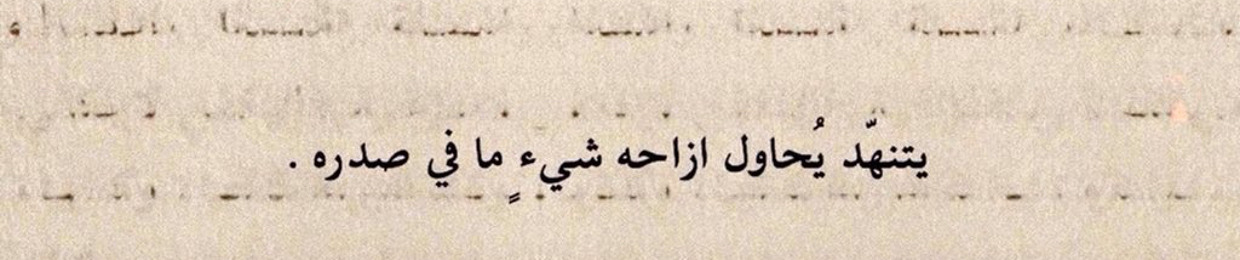 يتنهّد يُحاول ازاحه شيءٍ ما في صدره .